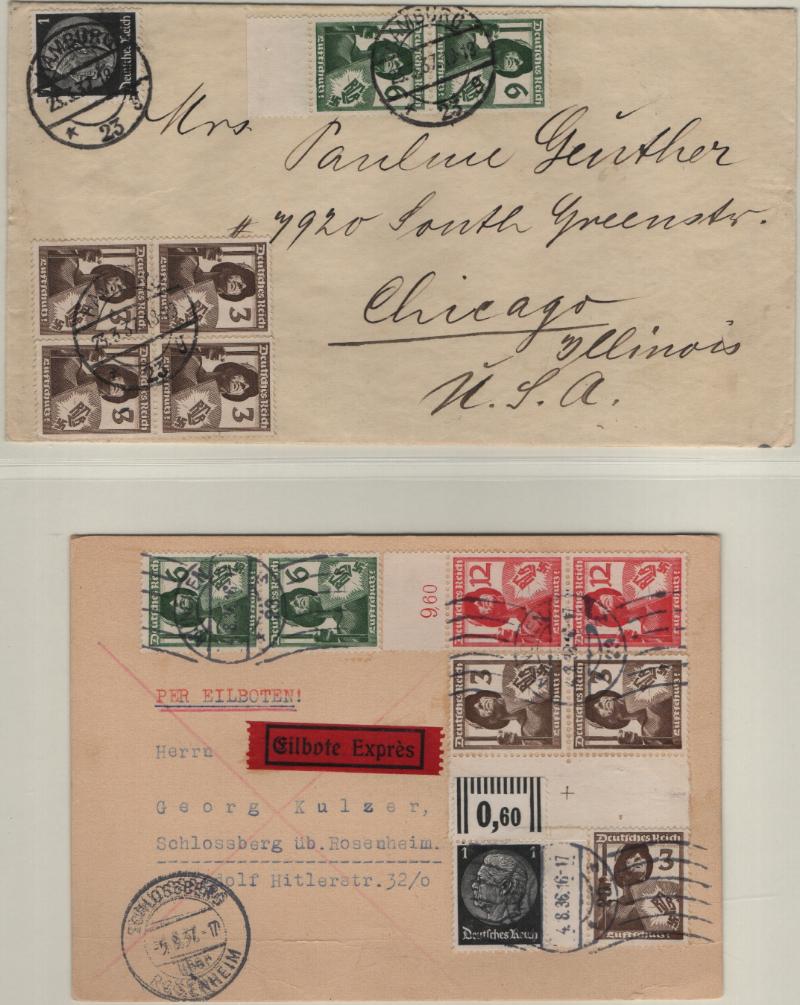 1
Deutsches Reich
HAMBURG
23
g
Deutsches Reich
6
Luftschutz!
Deutsches Reich
6
Luftschutz!
HAMBURG
23
g
Mrs. Pauline Genther
# 7920 South Greenstr.
Chicago
Illinois
U. S. A.
Deutsches Reich
3
Luftschutz!
Deutsches Reich
3
Luftschutz!
Deutsches Reich
3
Luftschutz!
Deutsches Reich
3
Luftschutz!
23
g
Deutsches Reich
6
Luftschutz!
Deutsches Reich
6
Luftschutz!
9,60
Deutsches Reich
12
Luftschutz!
Deutsches Reich
12
Luftschutz!
Deutsches Reich
3
Luftschutz!
Deutsches Reich
3
Luftschutz!
PER EILBOTEN!
Eilbote Exprès
Herrn
Georg Kulzer,
Schlossberg üb. Rosenheim.
dolf Hitlerstr. 32/o
0,60
1 1
Deutsches Reich
4.8.36.16-17
Deutsches Reich
3
Luftschutz!
SCHLOSSBERG
ROSENHEIM